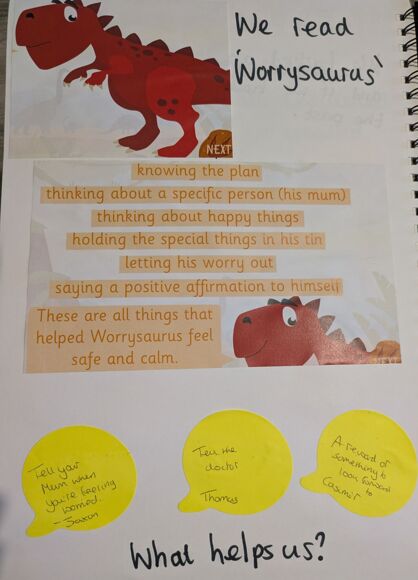 We read
'Worrysaurus'
NEXT
knowing the plan
thinking about a specific person (his mum)
thinking about happy things
holding the special things in his tin
letting his worry out
saying a positive affirmation to himself
These are all things that
helped Worrysaurus feel
safe and calm.
NEXT
Tell your
Mum when
you're feeling
worried.
Tell the
doctor
Thomas
A reward or
something to
look forward
to
Casimir
What helps us?